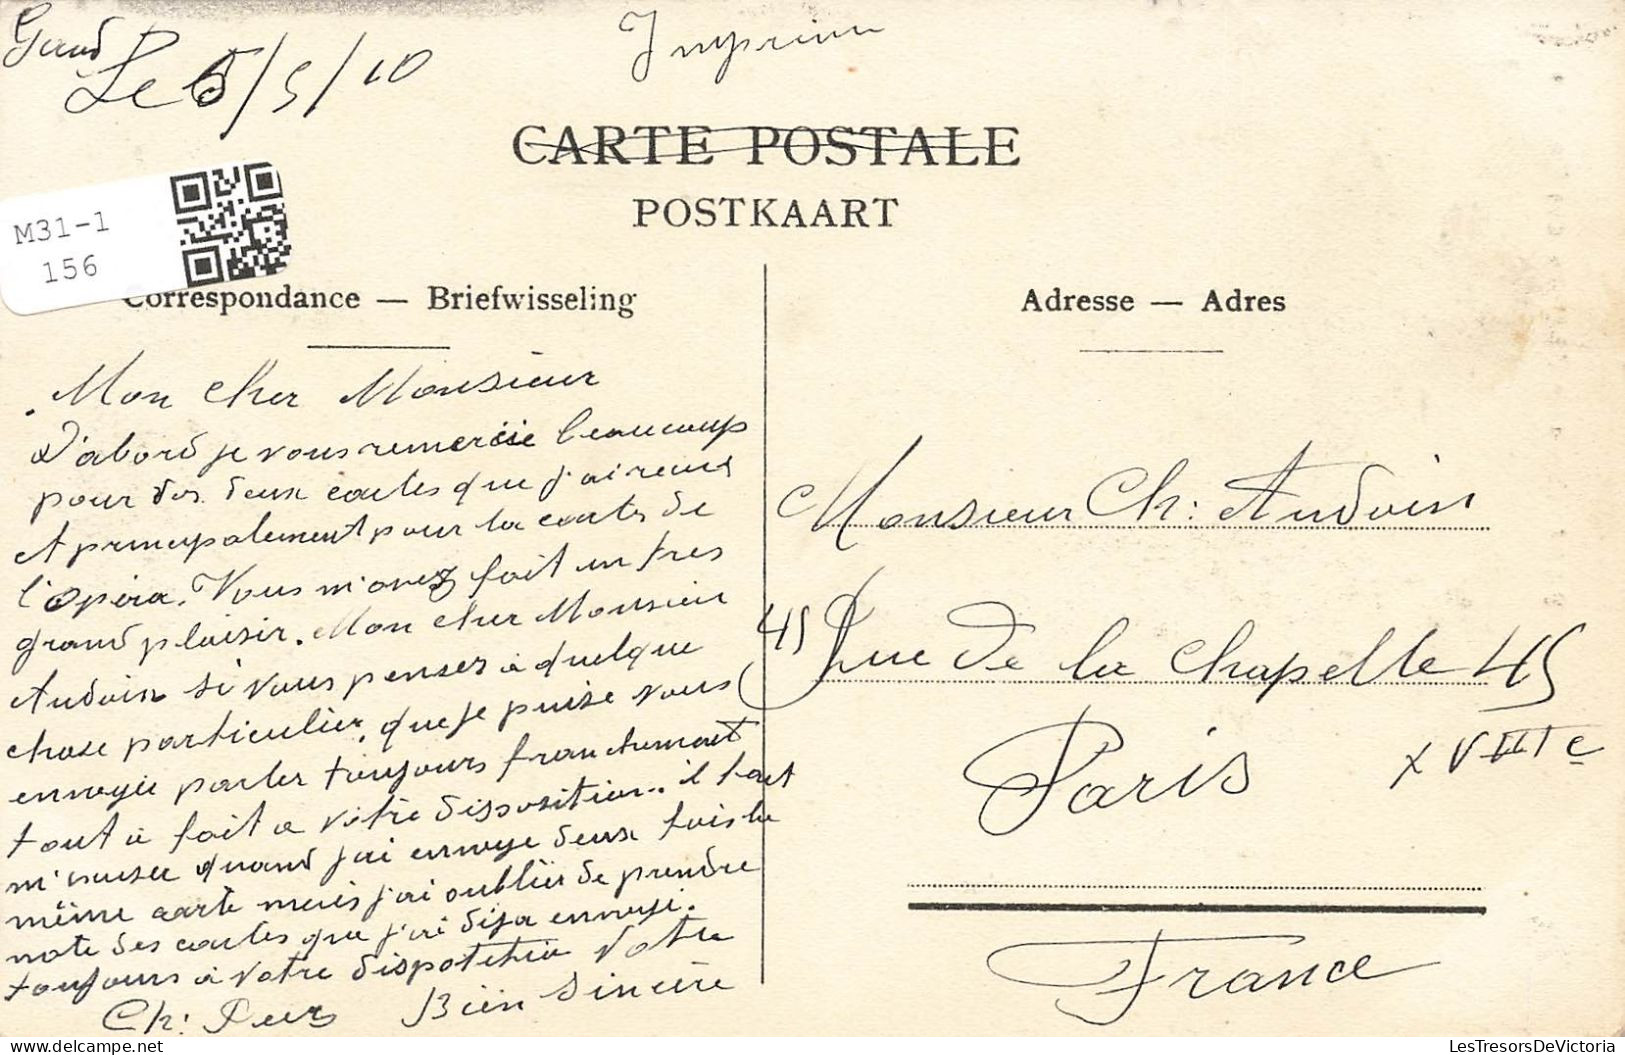 Gand
Le 5/5/10
Imprimé
CARTE POSTALE
POSTKAART
M31-1
156
Correspondance — Briefwisseling
Adresse — Adres
Mon cher Monsieur
D'abord je vous remercie beaucoup
pour vos deux cartes que j'ai reçus
et principalement pour la carte de
l'Opéra. Vous m'avez fait un très
grand plaisir. Mon cher Monsieur
Audoin si vous pensez à quelque
chose particulier, que je puise vous
envoyer parler toujours franchement
tout à fait a votre disposition. il faut
m'excuser quand j'ai envoye deux fois la
même carte mais j'ai oublier de prendre
note des cartes que j'ai déja envoyé.
toujours à votre Votre
Ch: Bien Sincère
Monsieur Ch: Audoin
45 Rue de la Chapelle 45
Paris XVIIIe
France
LesTresorsDeVictoria
delcampe.net